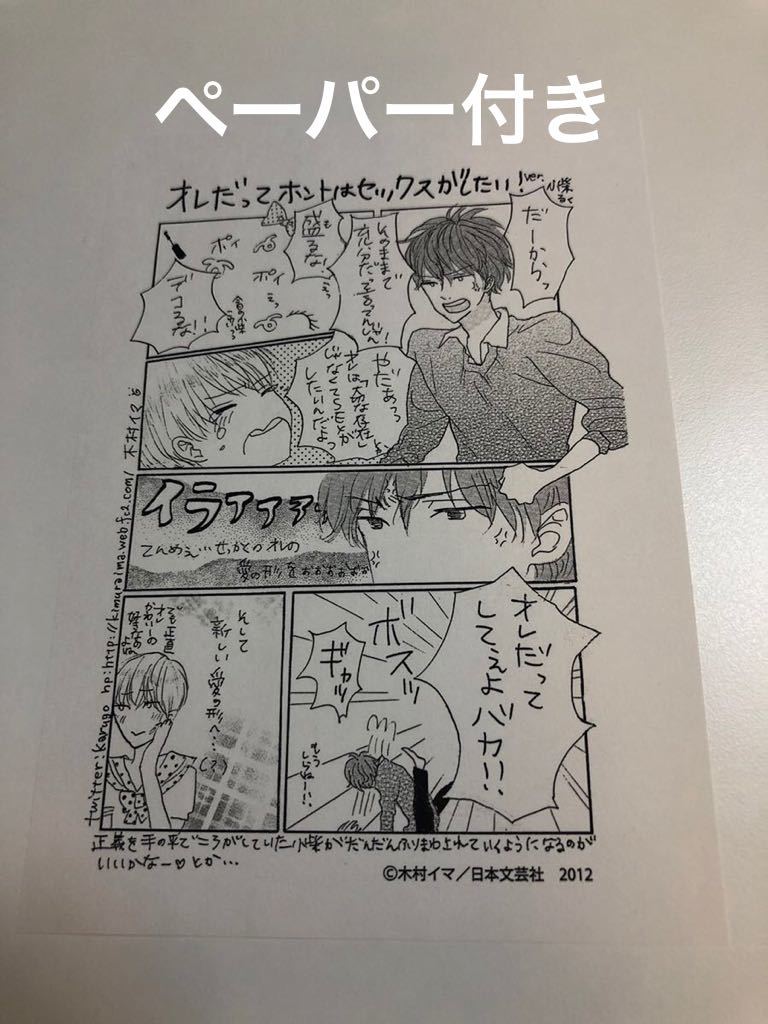 ペーパー付き
オレだってホントはセックスがしたい!ver.
だーからっ
そのままで
充分だって言ってんじゃん!
盛るな!
ポイ
ポイ
デコるな!!
やだあっっ
オレは「大切な存在」
じゃなくてSEXが
したいんだよっ
イラァァァ
てんめぇ…せっかくのオレの
愛の形をぉぉぉぉぉ
オレだって
してぇよバカ!!
ボスッ
ギャッ
もう
しらねー!!
そして
新しい愛の形へ…
(?)
でも正直
オレ
かわいーの
twitter:karugo hp:http://kimuraima.web.fc2.com/ 木村イマ
正義を手の平でころがしていた小柴がだんだんふりまわされていくようになるのが
いいかなー♡とか…
©木村イマ/日本文芸社 2012